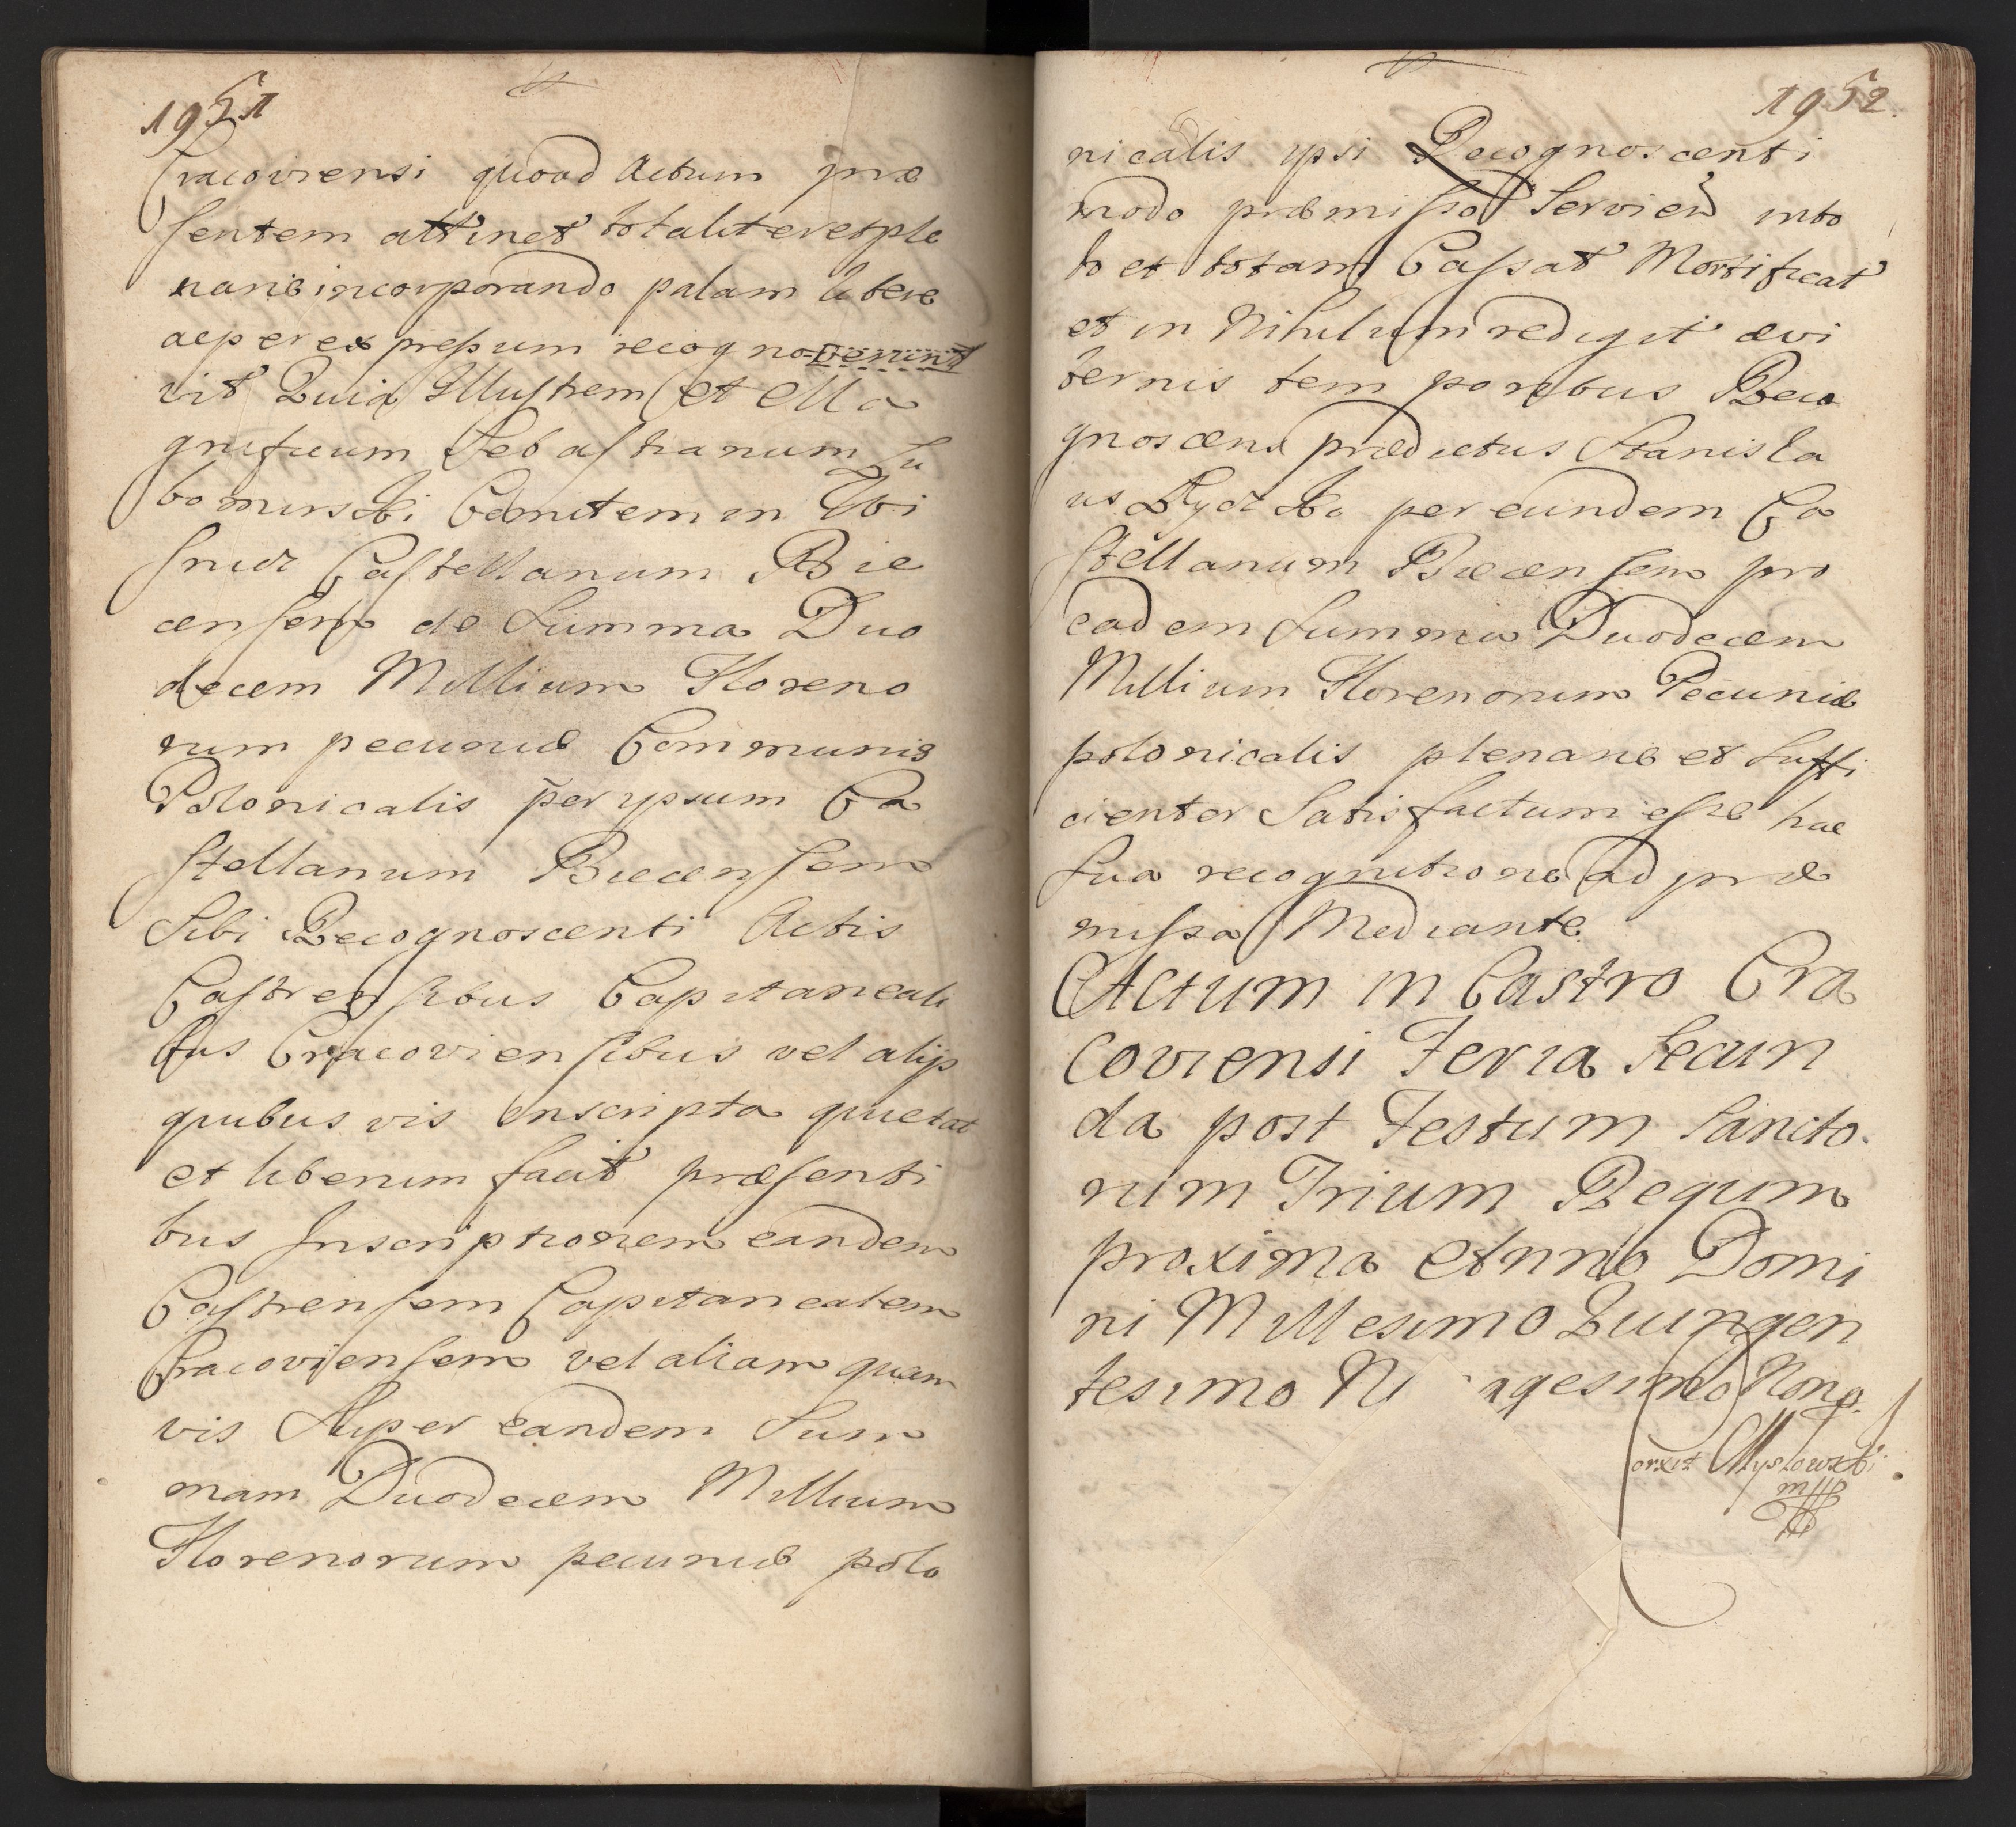 1951
Cracoviensi quoad Actum præ
sentem attinet totaliter et ple
narie incorporando palam libere
ac per expressum recogno-verunt
vit Quia Illustrem et Ma
gnificum Sebastianum Lu
bomirski Comitem in Wi
snicz Castellanum Bie
censem de Summa Duo
decem Millium Floreno
rum pecuniæ Communis
Polonicalis per ypsum Ca
stellanum Biecensem
Sibi Recognoscenti Actis
Castrensibus Capitaneali
bus Cracoviensibus vel alijs
quibus vis inscripta quietat
et liberum facit præsenti
bus Inscriptionem eandem
Castrensem Capitanealem
Cracoviensem vel aliam quam
vis Super eandem Sum
mam Duodecem Millium
Florenorum pecuniæ polo
1952.
nicalis ypsi Recognoscenti
modo præmisso Servien in to
to et totam Cassat Mortificat
et in Nihilum redigit ævi
ternis temporibus Reco
gnoscens prædictus Stanisla
us per eundem Ca
stellanum Biecensem pro
eadem Summa Duodecem
Millium Florenorum Pecuniæ
polonicalis plenarie et Suffi
cienter Satisfactum esse hac
Sua recognitione ad præ
missa Mediante.
Actum in Castro Cra
coviensi Feria Secun
da post Festum Sancto.
rum Trium Regum
proxima Anno Domi
ni Millesimo Quingen
tesimo N agesimo Nono.
Myslowski
mp